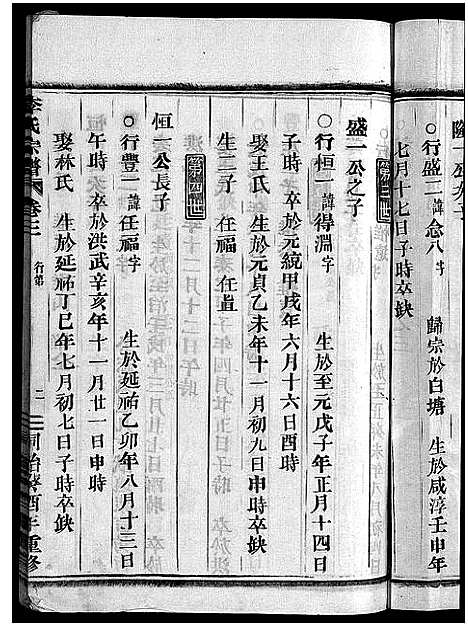 隆一公次子
○行盛二 諱念八 字 歸宗於白塘 生於咸淳壬申年
七月十七日子時卒缺
第三世
盛一公之子
○行恒一 諱得淵 字 生於至元戊子年正月十四日
子時 卒於元統甲戌年六月十六日酉時
娶王氏 生於元貞乙未年十一月初九日申時卒缺
生二子 任福 任直
第四世
恒一公長子
○行豐一 諱任福 字 生於延祐乙卯年八月十三日
午時 卒於洪武辛亥年十一月廿一日申時
娶林氏 生於延祐丁巳年七月初七日子時卒缺
李氏宗譜 卷三 行第 二 同治癸酉年重修